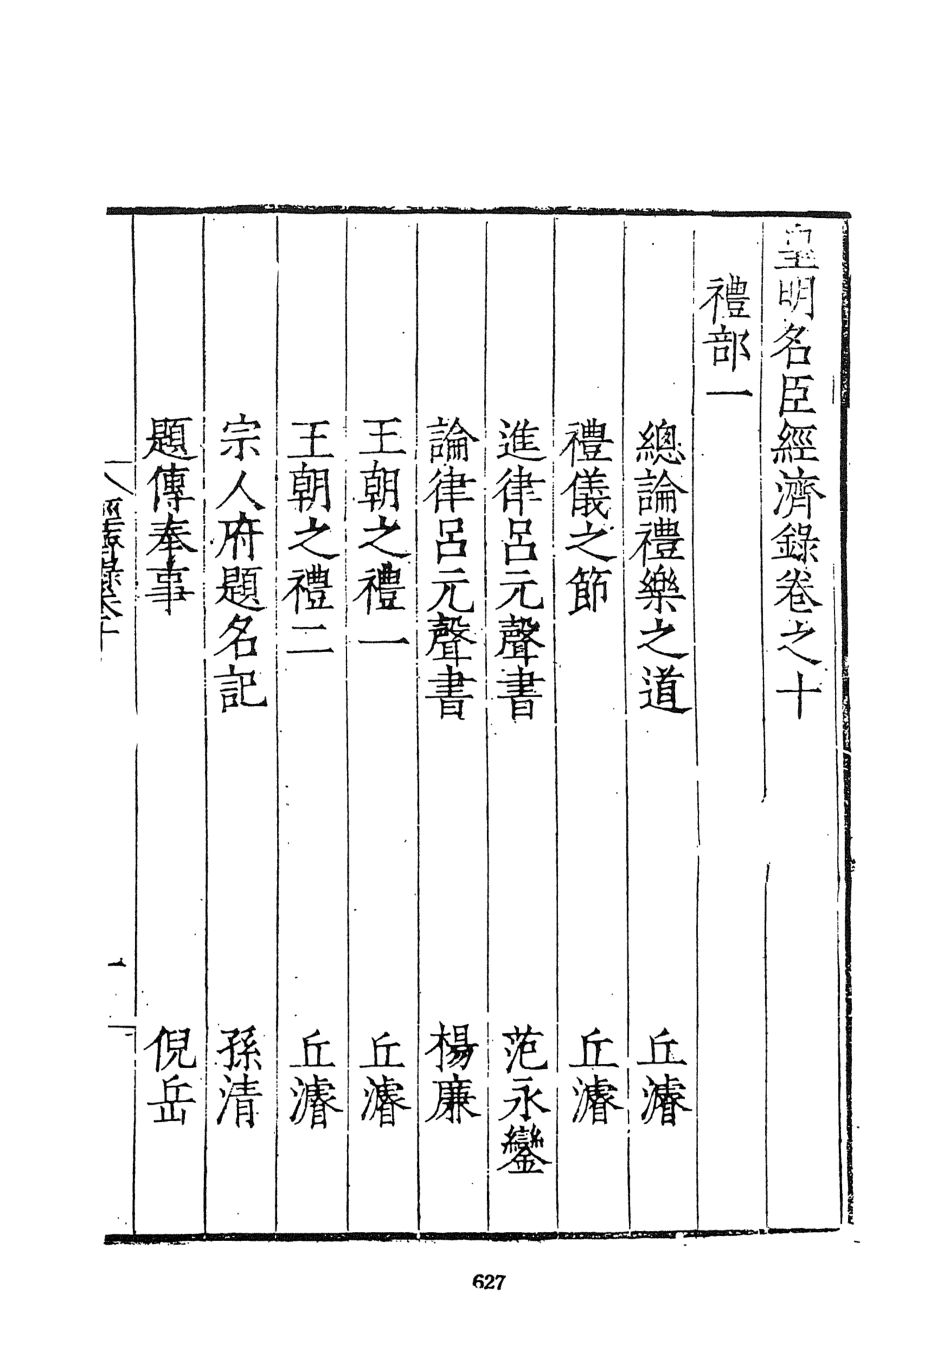 皇明名臣經濟錄卷之十
禮部一
總論禮樂之道 丘濬
禮儀之節 丘濬
進律呂元聲書 范永鑾
論律呂元聲書 楊廉
王朝之禮一 丘濬
王朝之禮二 丘濬
宗人府題名記 孫清
題傳奉事 倪岳
經濟錄卷十 一
627